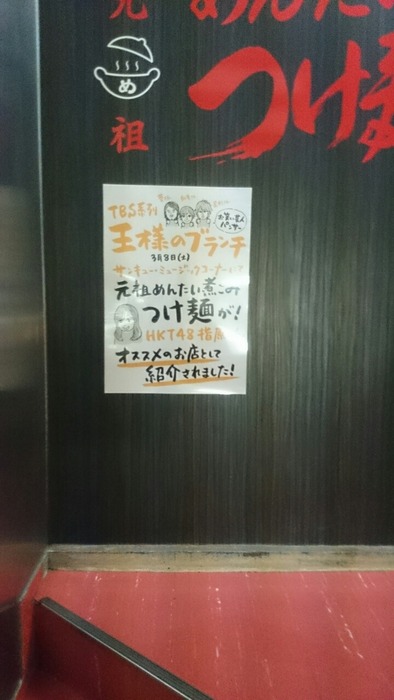 元
祖
め
めんたい
つけ麺
TBS系列
お笑い芸人
パンサー
王様のブランチ
3月8日(土)
サンキュー・ミュージックコーナーにて
元祖めんたい煮こみ
つけ麺が!
HKT48指原
オススメのお店として
紹介されました!